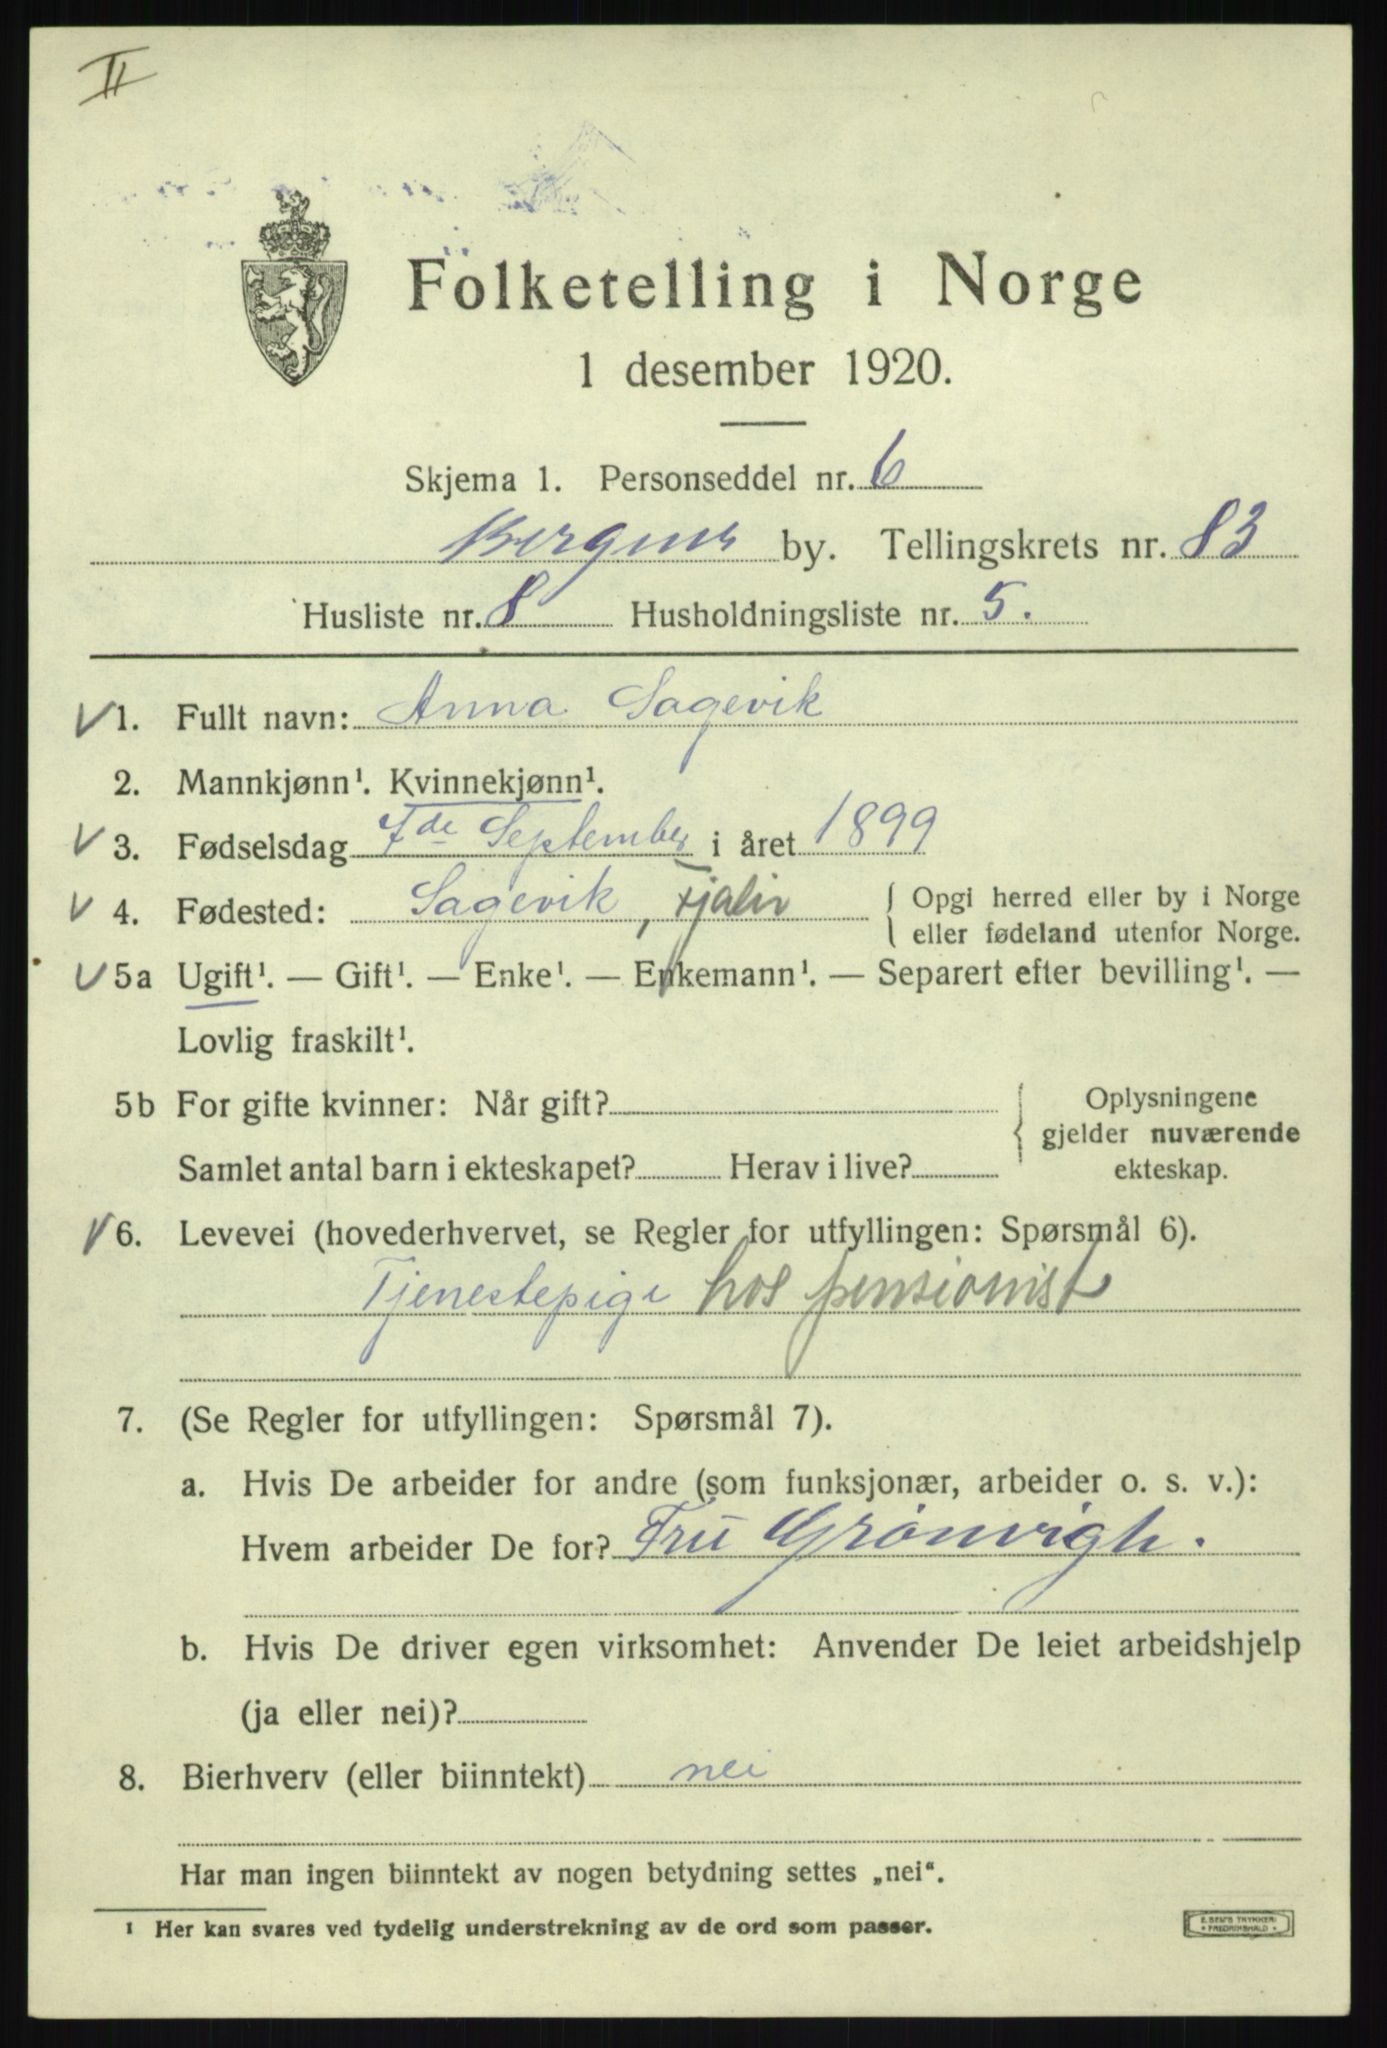 II
Folketelling i Norge
1 desember 1920.
Skjema 1. Personseddel nr. 6
Bergens by. Tellingskrets nr. 83
Husliste nr. 8 Husholdningsliste nr. 5.
1. Fullt navn: Anna Sagevik
2. Mannkjønn¹. Kvinnekjønn¹.
3. Fødselsdag 7de September i året 1899
4. Fødested: Sagevik, Fjaler { Opgi herred eller by i Norge
eller fødeland utenfor Norge.
5a Ugift¹. — Gift¹. — Enke¹. — Enkemann¹. — Separert efter bevilling¹. —
Lovlig fraskilt¹.
5b For gifte kvinner: Når gift? { Oplysningene
gjelder nuværende
Samlet antal barn i ekteskapet? Herav i live? ekteskap.
6. Levevei (hovederhvervet, se Regler for utfyllingen: Spørsmål 6).
Tjenestepige hos pensionist
7. (Se Regler for utfyllingen: Spørsmål 7).
a. Hvis De arbeider for andre (som funksjonær, arbeider o. s. v.):
Hvem arbeider De for? Fru Grönvigh.
b. Hvis De driver egen virksomhet: Anvender De leiet arbeidshjelp
(ja eller nei)?
8. Bierhverv (eller biinntekt) nei
Har man ingen biinntekt av nogen betydning settes „nei“.
¹ Her kan svares ved tydelig understrekning av de ord som passer.
E. SEM'S TRYKKERI
FREDRIKSHALD